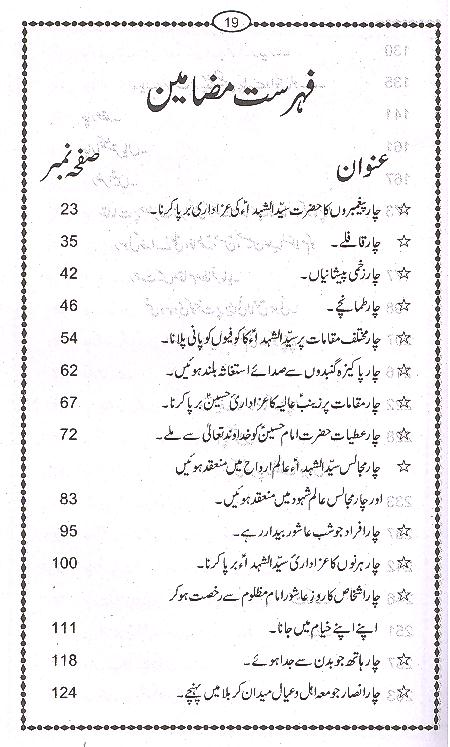 19
فہرست مضامین
عنوان صفحہ نمبر
☆ چار پیغمبروں کا حضرت سیّد الشہداءؑ کی عزاداری برپا کرنا۔ 23
☆ چار قافلے۔ 35
☆ چار زخمی پیشانیاں۔ 42
☆ چار طمانچے۔ 46
☆ چار مختلف مقامات پر سیّد الشہداءؑ کا کوفیوں کو پانی پلانا۔ 54
☆ چار پاکیزہ گنبدوں سے صدائے استغاثہ بلند ہوئیں۔ 62
☆ چار مقامات پر زینبؑ عالیہ کا عزاداریٔ حسینؑ برپا کرنا۔ 67
☆ چار عطیات حضرت امام حسینؑ کو خداوند تعالیٰ سے ملے۔ 72
☆ چار مجالس سیّد الشہداءؑ عالم ارواح میں منعقد ہوئیں
اور چار مجالس عالم شہود میں منعقد ہوئیں۔ 83
☆ چار افراد جو شب عاشور بیدار رہے۔ 95
☆ چار ہرنوں کا عزاداریٔ سیّد الشہداءؑ برپا کرنا۔ 100
☆ چار اشخاص کا روزِ عاشور امام مظلوم سے رخصت ہو کر
اپنے اپنے خیام میں جانا۔ 111
☆ چار ہاتھ جو بدن سے جدا ہوئے۔ 118
☆ چار انصار جو معہ اہل و عیال میدان کربلا میں پہنچے۔ 124